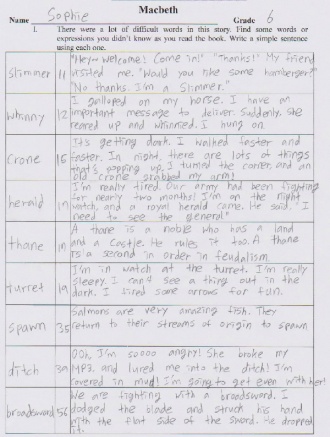 Macbeth
Name Sophie Grade 6
1. There were a lot of difficult words in this story. Find some words or
expressions you didn't know as you read the book. Write a simple sentence
using each one.
slimmer 11 "Hey~ welcome! Come in!" "Thanks!" My friend
visited me. "Would you like some hamberger?"
"No thanks. I'm a slimmer."
whinny 12 I galloped on my horse. I have an
important message to deliver. Suddenly, she
reared up and whinnied. I hung on
crone 15 It's getting dark. I walked faster and
faster. In night, there are lots of things
that's popping up. I turned the corner, and an
old crone grabbed my arm!
herald 17 I'm really tired. Our army had been fighting
for nearly two months! I'm on the night
watch, and a royal herald came. He said, "I
need to see the general"
thane A thane is a noble who has a land
and a castle. He rules it too. A thane
is a second in order in feudalism.
turret 19 I'm in watch at the turret. I'm really
sleepy. I can't see a thing out in the
dark. I fired some arrows for fun.
spawn 35 Salmons are very amazing fish. They
return to their streams of origin to spawn
ditch 39 Ooh, I'm soooo angry! She broke my
MP3, and lured me into the ditch! I'm
covered in mud! I'm going to get even with her!
broadsword 56 We are fighting with a broadsword. I
dodged the blade and struck his hand
with the flat side of the sword. He dropped
it.